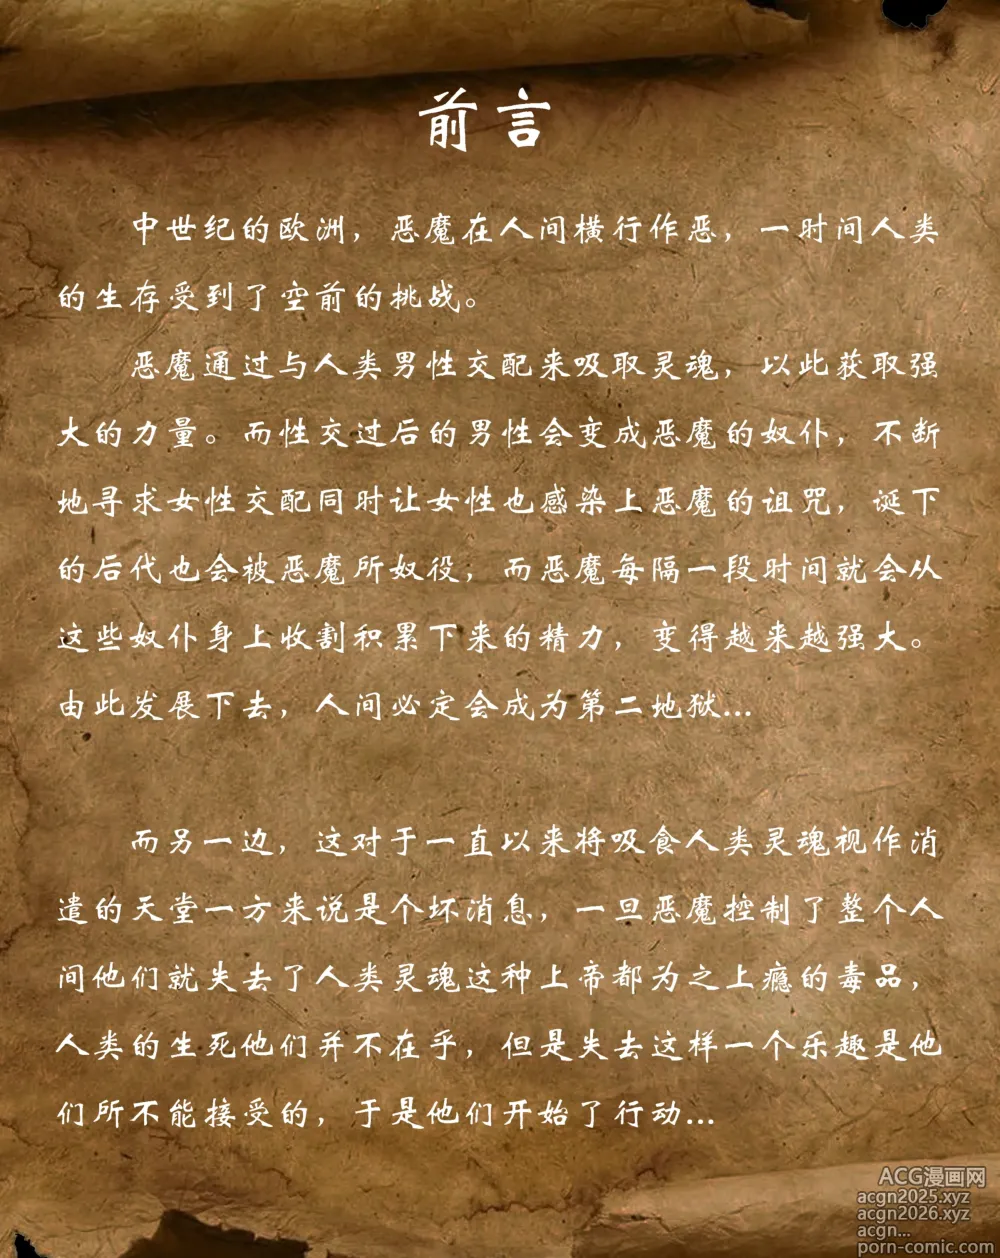 前言
中世纪的欧洲，恶魔在人间横行作恶，一时间人类
的生存受到了空前的挑战。
恶魔通过与人类男性交配来吸取灵魂，以此获取强
大的力量。而性交过后的男性会变成恶魔的奴仆，不断
地寻求女性交配同时让女性也感染上恶魔的诅咒，诞下
的后代也会被恶魔所奴役，而恶魔每隔一段时间就会从
这些奴仆身上收割积累下来的精力，变得越来越强大。
由此发展下去，人间必定会成为第二地狱...
而另一边，这对于一直以来将吸食人类灵魂视作消
遣的天堂一方来说是个坏消息，一旦恶魔控制了整个人
间他们就失去了人类灵魂这种上帝都为之上瘾的毒品，
人类的生死他们并不在乎，但是失去这样一个乐趣是他
们所不能接受的，于是他们开始了行动...
ACG漫画网
acgn2025.xyz
acgn2026.xyz
acgn...
porn-comic.com